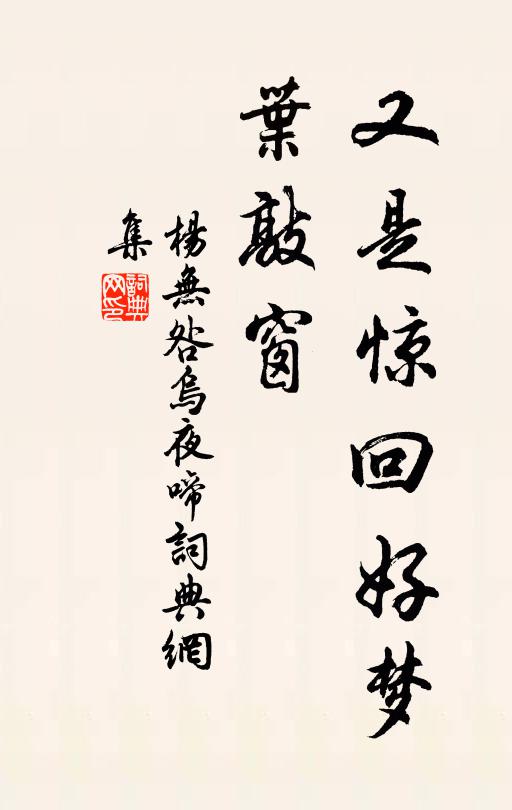 又是惊回好梦
葉敲窗
楊無咎烏夜啼詞典網
集
詞典网印